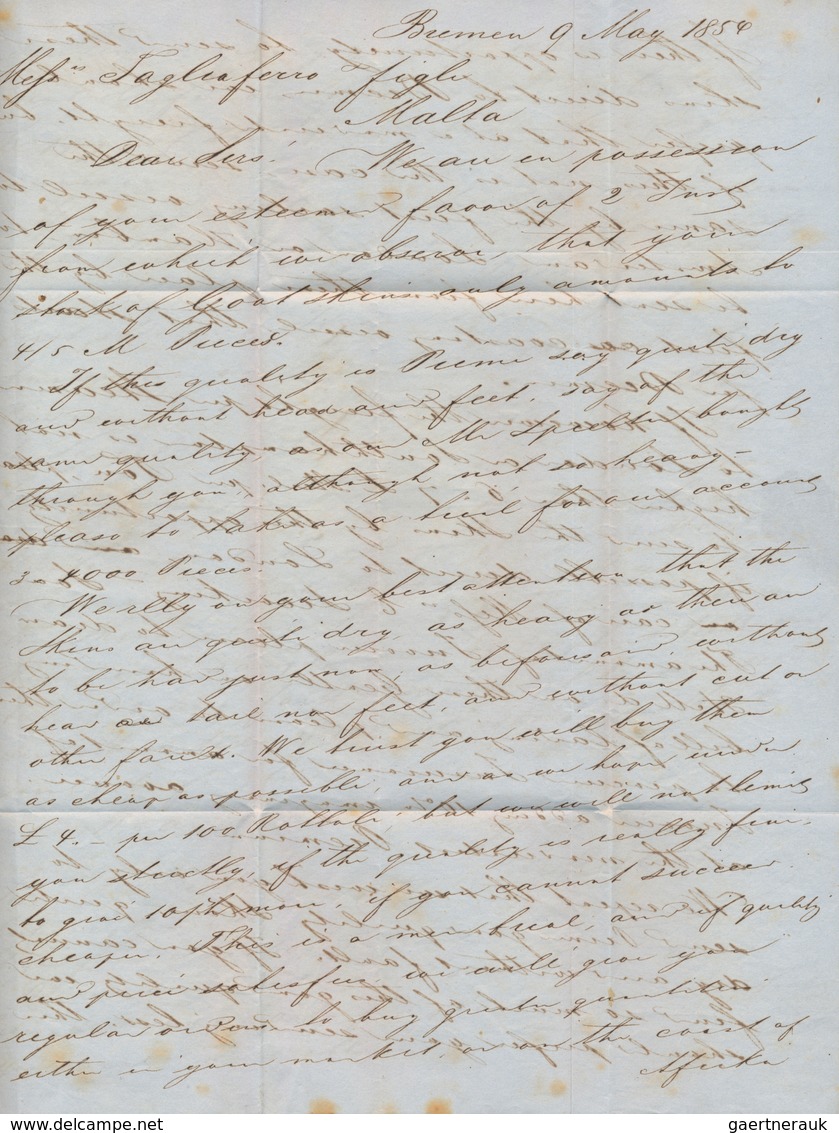 Bremen 9 May 1854
Messrs Tagliaferro figli
Malta
Dear Sirs! We are in possession
of your esteemed favor of 2 Inst
from which we observe, that your
stock of Goat skins only amounts to
4/5 M Pieces.
If this quality is Prime say quite dry
and without head and feet, say of the
same quality as our Mr Specht bought
through you, although not so heavy –
please to take as a trial for our account
3 a 4000 Pieces.
We rely on your best attention that the
skins are quite dry, as heavy as they are
to be had just now, as beforesaid, without
head or tail nor feet, and without cut or
other fault. We trust you will buy them
as cheap as possible, and as we hope under
£ 4.– per 100 Rottole, but we will not limit
you strictly, if the quality is really fine,
to give 10/ more, if you cannot succeed
cheaper. This is a mere trial, and if quality
and price satisfies we will give you
regular orders to buy greater quantities
either in your market, or on the coast of
Afrika
gaertnerauk